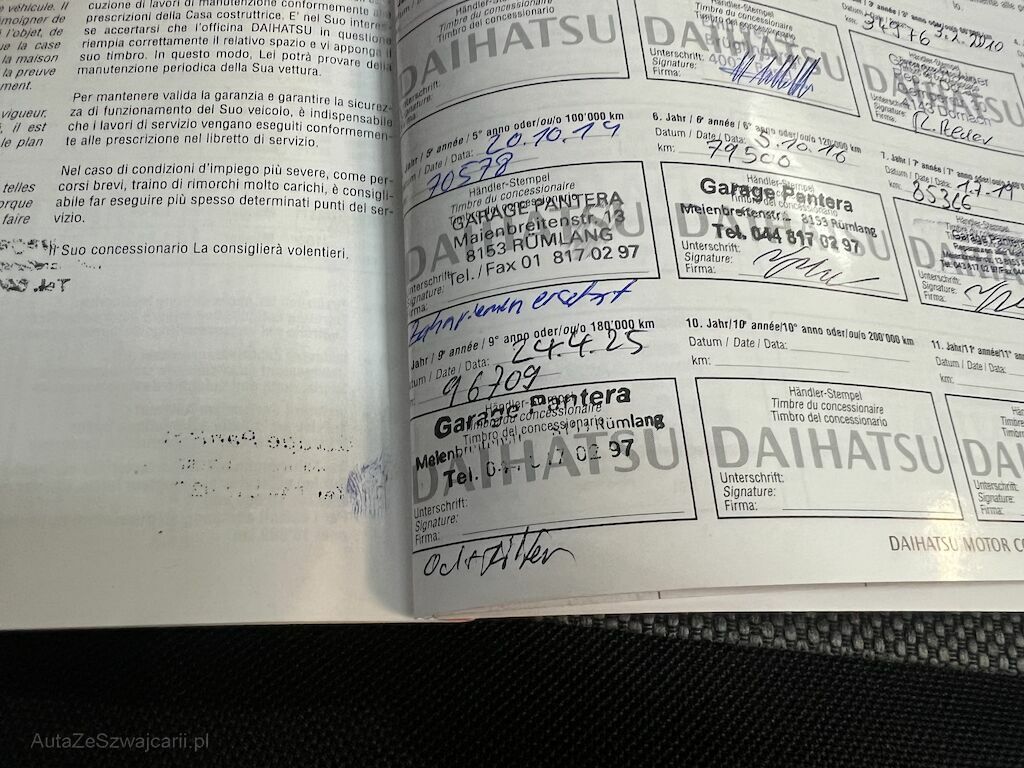 véhicule. Il
moigner de
l'objet, de
ue la case
la maison
la preuve
ment.
vigueur,
, il est
le plan
telles
orque
faire
cuzione di lavori di manutenzione conformemente alle
prescrizioni della Casa costruttrice. E' nel Suo interes-
se accertarsi che l'officina DAIHATSU in questione
riempia correttamente il relativo spazio e vi apponga il
suo timbro. In questo modo, Lei potrà provare della
manutenzione periodica della Sua vettura.
Per mantenere valida la garanzia e garantire la sicurez-
za di funzionamento del Suo veicolo, è indispensabile
che i lavori di servizio vengano eseguiti conformemen-
te alle prescrizione nel libretto di servizio.
Nel caso di condizioni d'impiego più severe, come per-
corsi brevi, traino di rimorchi molto carichi, è consigli-
abile far eseguire più spesso determinati punti del ser-
vizio.
Il Suo concessionario La consiglierà volentieri.
Timbre du concessionnaire
Timbro del concessionario
DAIHATSU
Unterschrift:
Signature:
Timbre du concessionaire
Timbro del concessionario
DAIHATSU
Unterschrift:
Signature:
Firma:
Datum
km:
31'976 3.2.2010
Händler-Stempel
DAIHATSU
4143 Dornach
Unterschrift:
Signature:
Firma:
Jahr / 5e année / 5° anno oder/ou/o 100'000 km
Datum / Date / Data: 20.10.14
70578
Händler-Stempel
Timbre du concessionaire
Timbro del concessionario
DAIHATSU
GARAGE PANTERA
Maienbreitenstr. 13
8153 RÜMLANG
Tel. / Fax 01 817 02 97
Unterschrift:
Signature:
Firma:
Zahnriemen ersetzt
6. Jahr / 6e année / 6° anno oder/ou/o 120'000 km
Datum / Date / Data: 5.10.16
km: 79500
Händler-Stempel
DAIHATSU
Garage Pantera
Meienbreitenstr. 8153 Rümlang
Tel. 044 817 02 97
Unterschrift:
Signature:
Firma:
7. Jahr / 7e année / 7° anno
Datum / Date / Data: 1.7.19
km: 85326
Händler-Stempel
Garage Pantera
Unterschrift:
Signature:
Firma:
Jahr / 9e année / 9° anno oder/ou/o 180'000 km
Datum / Date / Data: 24.4.25
96709
Händler-Stempel
Timbre du concessionaire
Timbro del concessionario
DAIHATSU
Garage Pantera
Rümlang
Tel. 02 97
Unterschrift:
Signature:
Firma:
Oel + Filter
10. Jahr/10e année/10° anno oder/ou/o 200'000 km
Datum / Date / Data:
km:
Händler-Stempel
Timbre du concessionaire
Timbro del concessionario
DAIHATSU
Unterschrift:
Signature:
Firma:
11. Jahr/11e année/11° anno
Datum / Date / Data:
km:
Timbre
Timbro
DAI
Unterschrift:
Signature:
Firma:
DAIHATSU MOTOR CO
AutaZeSzwajcarii.pl